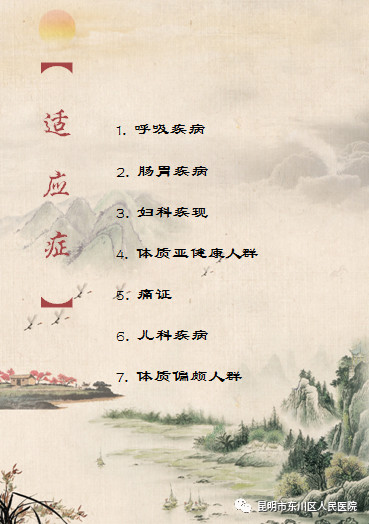 【适应症】
1. 呼吸疾病
2. 肠胃疾病
3. 妇科疾现
4. 体质亚健康人群
5. 痛证
6. 儿科疾病
7. 体质偏颇人群
昆明市东川区人民医院